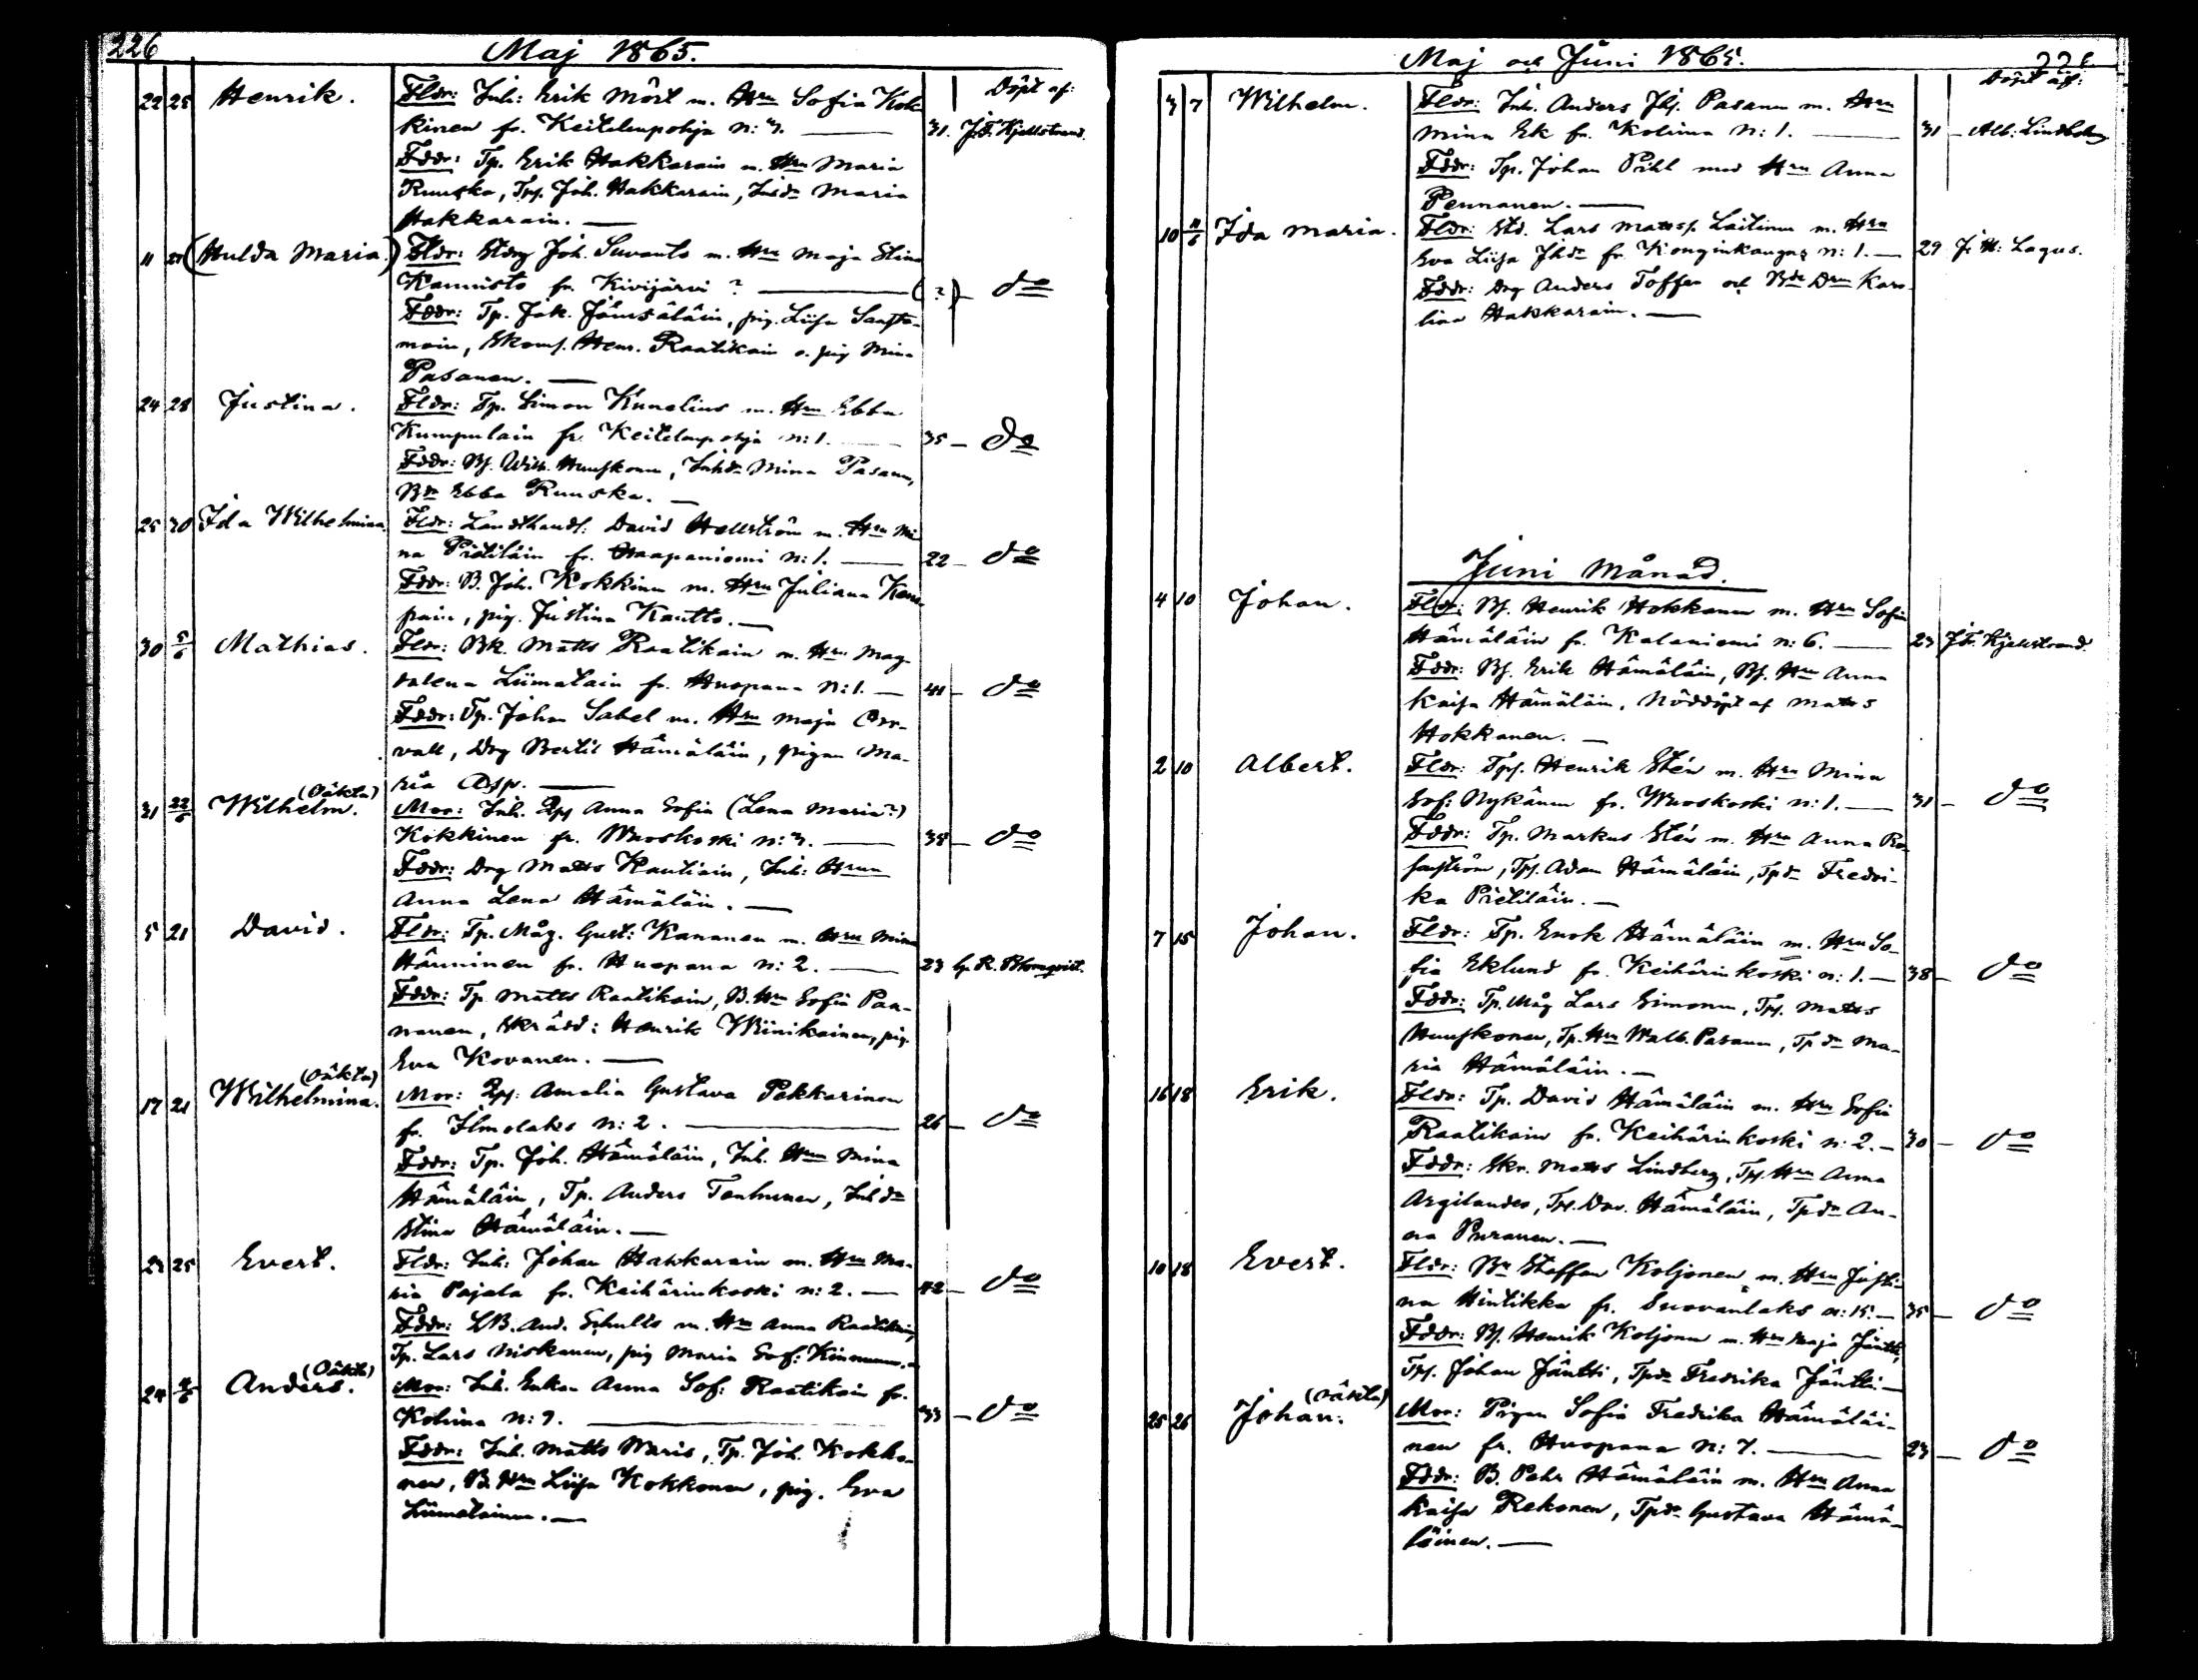 226
Maj 1865.
Döpt af:
22 25 Henrik. Fldr: Inh: Erik Mört m. Hru Sofia Kok-
kinen fr. Keitelenpohja n: 3. — 31. J.F. Kjellstrand.
Fddr: Tp. Erik Hakkarain m. Hru Maria
Ruuska, Tps. Joh. Hakkarain, Inhdr Maria
Hakkarain. —
11 25 (Hulda Maria.) Fldr: Stdrg Joh. Suvanto m. Hru Maja Stina
Kannisto fr. Kivijärvi? — (?) — do
Fddr: Tp. Jak. Jämsäläin, pig. Liisa Saasta-
moin, Skoms. Henr. Raatikain o. pig Mina
Pasanen. —
24 28 Justina. Fldr: Tp. Simon Kunelius m. Hru Ebba
Kumpulain fr. Keitelenpohja n: 1. — 35 — do
Fddr: Bs. Wilh. Huuskonen, Inhdr Mina Pasanen,
Bdr Ebba Ruuska. —
25 30 Ida Wilhelmina. Fldr: Landthandl: David Hellström m. Hru Mi-
na Pietiläin fr. Haapaniemi n: 1. — 22 — do
Fddr: B. Joh. Kokkinen m. Hru Juliana
pain, pig. Justina Kautto. —
30 5/6 Mathias. Fldr: Bk. Matts Raatikain m. Hru Mag-
dalena Liimatain fr. Huopana n: 1. — 41 — do
Fddr: Tp. Johan Sabel m. Hru Maja Cor-
vall, Drg Bertil Hämäläin, pigan Ma-
ria Asp. —
31 22/6 Wilhelm. (Oäkta) Mor: Inh. Qps Anna Sofia (Lena Maria?)
Kokkinen fr. Wuoskoski n: 3. — 35 — do
Fddr: Drg Matts Kautiain, Inh: Hrun
Anna Lena Hämäläin. —
5 21 David. Fldr: Tp. Måg. Gust: Kananen m. Hru Mina
Hänninen fr. Huopana n: 2. — 23 G. R. Blomqvist.
Fddr: Tp. Matts Raatikain, B. Hru Sofia Paa-
nanen, Skrädd: Henrik Wiinikainen, pig.
Eva Kovanen. —
17 21 Wilhelmina. (Oäkta) Mor: Qps: Amalia Gustava Pakkarinen
fr. Ilmolaks n: 2. — 26 — do
Fddr: Tp. Joh. Hämäläin, Inh. Hru Mina
Hämäläin, Tp. Anders Tenhunen, Inhdr
Stina Hämäläin. —
23 25 Evert. Fldr: Inh: Johan Hakkarain m. Hru Ma-
ria Pajala fr. Keihärinkoski n: 2. — 42 — do
Fddr: LB. And. Schults m. Hru Anna Raatikain,
Tp. Lars Niskanen, pig Maria Sof: Kinnunen. —
24 4/6 Anders. (Oäkta) Mor: Inh. Enkan Anna Sof: Raatikain fr.
Kolima n: 7. — 33 — do
Fddr: Inh. Matts Waris, Tp. Joh. Kokko-
nen, B. Hru Liisa Kokkonen, pig. Eva
Liimatainen. —
Maj och Juni 1865.
226
Döpt af:
3 7 Wilhelm. Fldr: Inh. Anders Jhs. Pasanen m. Hru
Mina Ek fr. Kolima n: 1. — 31 — Alb: Lindberg
Fddr: Tp. Johan Pihl med Hru Anna
Pennanen. —
10 11/6 Ida Maria. Fldr: Std. Lars Mattss. Laitinen m. Hru
Eva Liisa Jhdr fr. Konginkangas n: 1. — 29 J. H: Lagus.
Fddr: Drg Anders Toffer och Bdr Drn Karo-
lina Hakkarain. —
Juni Månad.
4 10 Johan. Fldr: Bs. Henrik Hokkanen m. Hru Sofia
Hämäläin fr. Kalaniemi n: 6. — 23 J.F. Kjellstrand.
Fddr: Bs. Erik Hämäläin, Bs. Hru Anna
Kaisa Hämäläin, Nöddöpt af Matts
Hokkanen. —
2 10 Albert. Fldr: Tps. Henrik Stén m. Hru Mina
Sof: Nykänen fr. Wuoskoski n: 1. — 31 — do
Fddr: Tp. Markus Stén m. Hru Anna Ro-
senström, Tps. Adam Hämäläin, Tpdr Fredri-
ka Pietiläin. —
7 15 Johan. Fldr: Tp. Enok Hämäläin m. Hru So-
fia Eklund fr. Keihärinkoski n: 1. — 38 — do
Fddr: Tp. Måg Lars Simonen, Tps. Matts
Huuskonen, Tp. Hru Walb. Pasanen, Tpdr Ma-
ria Hämäläin. —
16 18 Erik. Fldr: Tp. David Hämäläin m. Hru Sofia
Raatikain fr. Keihärinkoski n: 2. — 30 — do
Fddr: Skr. Matts Lindberg, Tps. Hru Anna
Argilander, Tps. Dav. Hämäläin, Tpdr An-
na Puranen. —
10 18 Evert. Fldr: Bn Staffan Koljonen m. Hru Justi-
na Hintikka fr. Suovanlaks n: 15. — 35 — do
Fddr: Bs. Henrik Koljonen m. Hru Maja Jäntti,
Tps. Johan Jäntti, Tpdr Fredrika Jäntti. —
25 26 Johan. (Oäkta) Mor: Pigan Sofia Fredrika Hämäläi-
nen fr. Huopana n: 7. — 23 — do
Fddr: B. Pehr Hämäläin m. Hru Anna
Kaisa Rekonen, Tpdr Gustava Hämä-
läinen. —